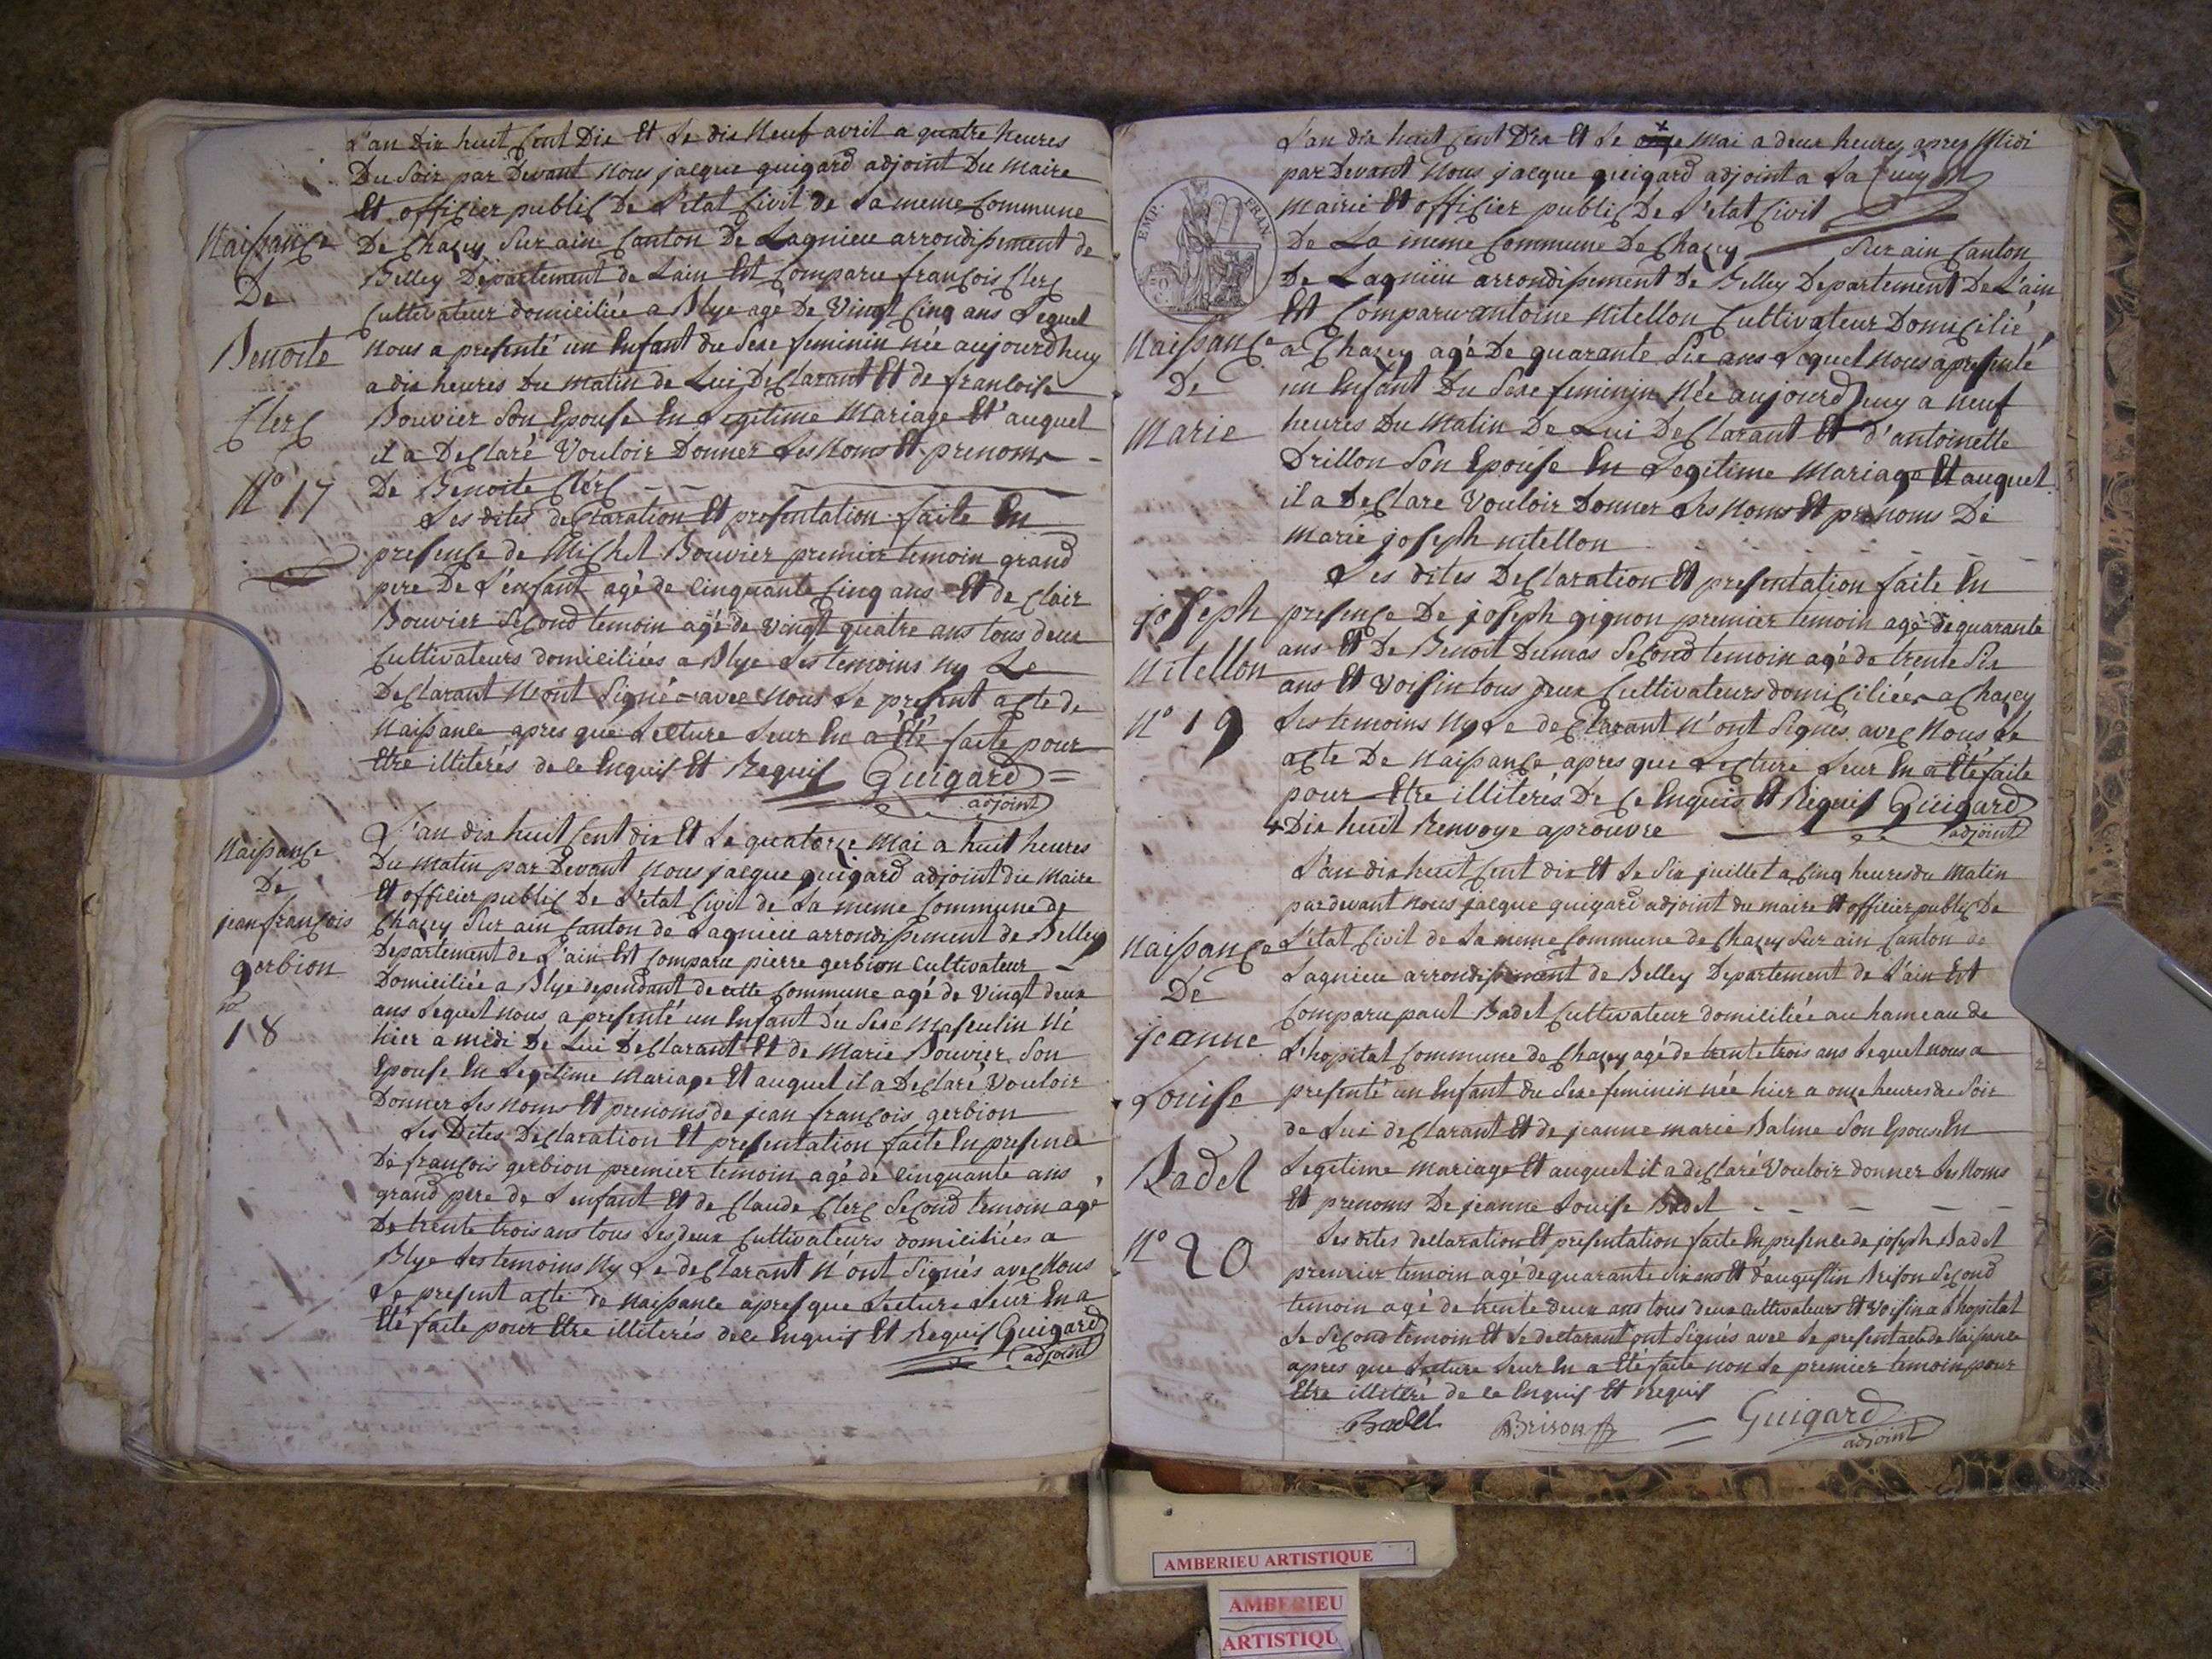 L'an Dix huit Cent Dix Et Le dix Neuf avril a quatre heures
Du Soir par Devant Nous jacque guigard adjoint Du Maire
Et officier public De L'etat Civil de La meme Commune
Naissance
De Chazey Sur ain Canton De Lagnieu arrondissement de
Belley Departement de Lain Est Comparu françois Clerc
De
Cultivateur domiciliée a Blye agé De Vingt Cinq ans Lequel
Benoite
Nous a presenté un Enfant du Sexe feminin née aujourdhuy
a dix heures Du matin de Lui Declarant Et de francoise
Clerc
Bouvier Son Epouse En Legitime Mariage Et auquel
il a Declaré Vouloir Donner Les Noms Et prenoms
N° 17
De Benoite Clerc
Les dites declaration Et presentation faite En
presence de Michel Bouvier premier temoin grand
pere De L'enfant agé de Cinquante Cinq ans Et de Clair
Bouvier Second temoin agé de vingt quatre ans tous deux
Cultivateurs domiciliées a Blye Les temoins ny Le
Declarant Nont Signé avec Nous Le present acte de
Naissance apres que Lecture Leur En a Eté faite pour
Etre illiterés de ce Enquis Et Requis Guigard
adjoint
Naissance
De
jean françois
gerbion
n°
18
L'an dix huit Cent dix Et Le quatorze Mai a huit heures
Du Matin par Devant Nous jacque guigard adjoint du Maire
Et officier public De L'etat Civil de La meme Commune de
Chazey Sur ain Canton de Lagnieu arrondissement de Belley
Departement de L'ain Est Comparu pierre gerbion Cultivateur
Domiciliée a Blye dependant de cette Commune agé de Vingt deux
ans Lequel Nous a presenté un Enfant du Sexe Masculin Né
hier a midi De Lui Declarant Et de Marie Bouvier Son
Epouse En Legitime Mariage Et auquel il a Declaré Vouloir
Donner Les Noms Et prenoms de jean françois gerbion
Les Dites Declaration Et presentation faite En presence
De françois gerbion premier temoin agé de Cinquante ans
grand pere de L'enfant Et de Claude Clerc Second temoin agé
De trente trois ans tous Les deux Cultivateurs domiciliées a
Blye Les temoins Ny Le declarant N'ont Signés avec Nous
Le present acte de Naissance apres que Lecture Leur En a
Eté faite pour Etre illiterés de ce Enquis Et Requis Guigard
adjoint
EMP. FRAN.
L'an dix huit Cent Dix Et Le Mai a deux heures apres Midi
par Devant Nous jacque guigard adjoint a La
Mairie Et officier public De L'etat Civil
De La meme Commune De Chazey Sur ain Canton
De Lagnieu arrondissement De Belley Departement De L'ain
Est Comparu antoine Nitellon Cultivateur Domicilié
Naissance
De
Marie
joseph
Nitellon
N° 19
a Chazey agé De quarante Six ans Lequel Nous a presenté
un Enfant Du Sexe feminin Née aujourd'huy a neuf
heures Du Matin De Lui Declarant Et d'antoinette
Drillon Son Epouse En Legitime Mariage Et auquel
il a Declare Vouloir Donner Les Noms Et prenoms De
Marie joseph nitellon
Les dites Declaration Et presentation faite En
presence De joseph gignon premier temoin agé de quarante
ans Et De Benoit Dumas Second temoin agé de trente Six
ans Et Voisin tous deux Cultivateurs domiciliées a Chazey
Les temoins Ny Le declarant N'ont Signés avec Nous Le
acte De Naissance apres que Lecture Leur En a Eté faite
pour Etre illiterés De Ce Enquis Et Requis Guigard
adjoint
Dix huit Renvoye aprouvre
Naissance
De
jeanne
Louise
Badel
N° 20
L'an dix huit Cent dix Et Le Six juillet a Cinq heures du Matin
par devant Nous jacque guigard adjoint du maire Et officier public De
L'etat Civil de La meme Commune de Chazey Sur ain Canton de
Lagnieu arrondissement de Belley Departement de L'ain Est
Comparu paul Badel Cultivateur domiciliée au hameau de
L'hopital Commune de Chazey agé de trente trois ans Lequel nous a
presenté un Enfant du Sexe feminin née hier a onze heures du Soir
de Lui declarant Et de jeanne marie Baline Son Epouse En
Legitime Mariage Et auquel il a declaré Vouloir donner Les Noms
Et prenoms De jeanne Louise Badel
Les dites declaration Et presentation faite En presence de joseph Badel
premier temoin agé de quarante Six ans Et d'augustin Brison Second
temoin agé de trente deux ans tous deux Cultivateurs Et Voisin a L'hopital
Le Second temoin Et Le declarant ont Signés avec Le present acte de Naissance
apres que Lecture Leur En a Eté faite non Le premier temoin pour
Etre illiteré de ce Enquis Et Requis
Badel Brison Guigard
adjoint
AMBERIEU ARTISTIQUE
AMBERIEU
ARTISTIQU